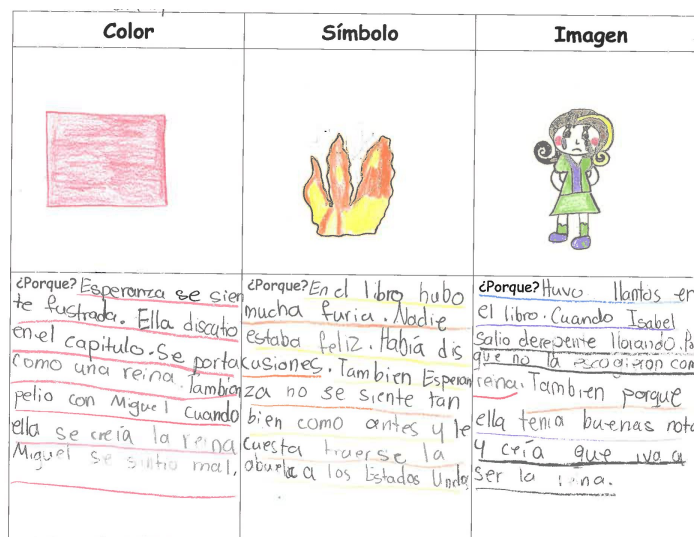 Color
Símbolo
Imagen
¿Porque? Esperanza se sien
te fustrada. Ella discutio
en el capitulo. Se porta
como una reina. Tambien
pelio con Miguel cuando
ella se creía la reina
Miguel se sintio mal.
¿Porque? En el libro hubo
mucha furia. Nadie
estaba feliz. Había dis
cusiones. Tambien Esperan
za no se siente tan
bien como antes y le
cuesta traerse la
abuela a los Estados Unidos
¿Porque? Huvo llantos en
el libro. Cuando Isabel
salio derepente llorando. Po
que no la escogieron com
reina. Tambien porque
ella tenia buenas nota
y creía que iva a
ser la reina.